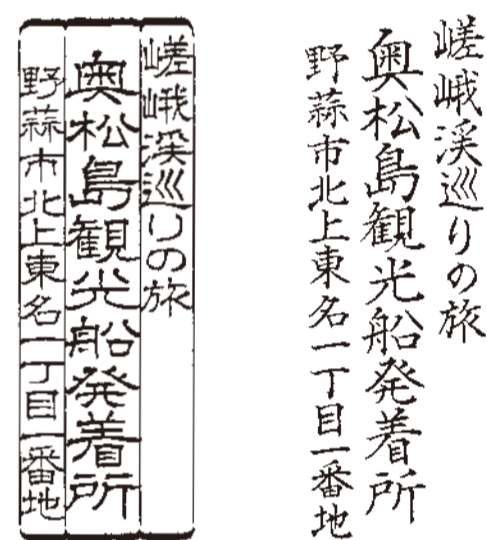 嵯峨渓巡りの旅
奥松島観光船発着所
野蒜市北上東名一丁目一番地
嵯峨渓巡りの旅
奥松島観光船発着所
野蒜市北上東名一丁目一番地